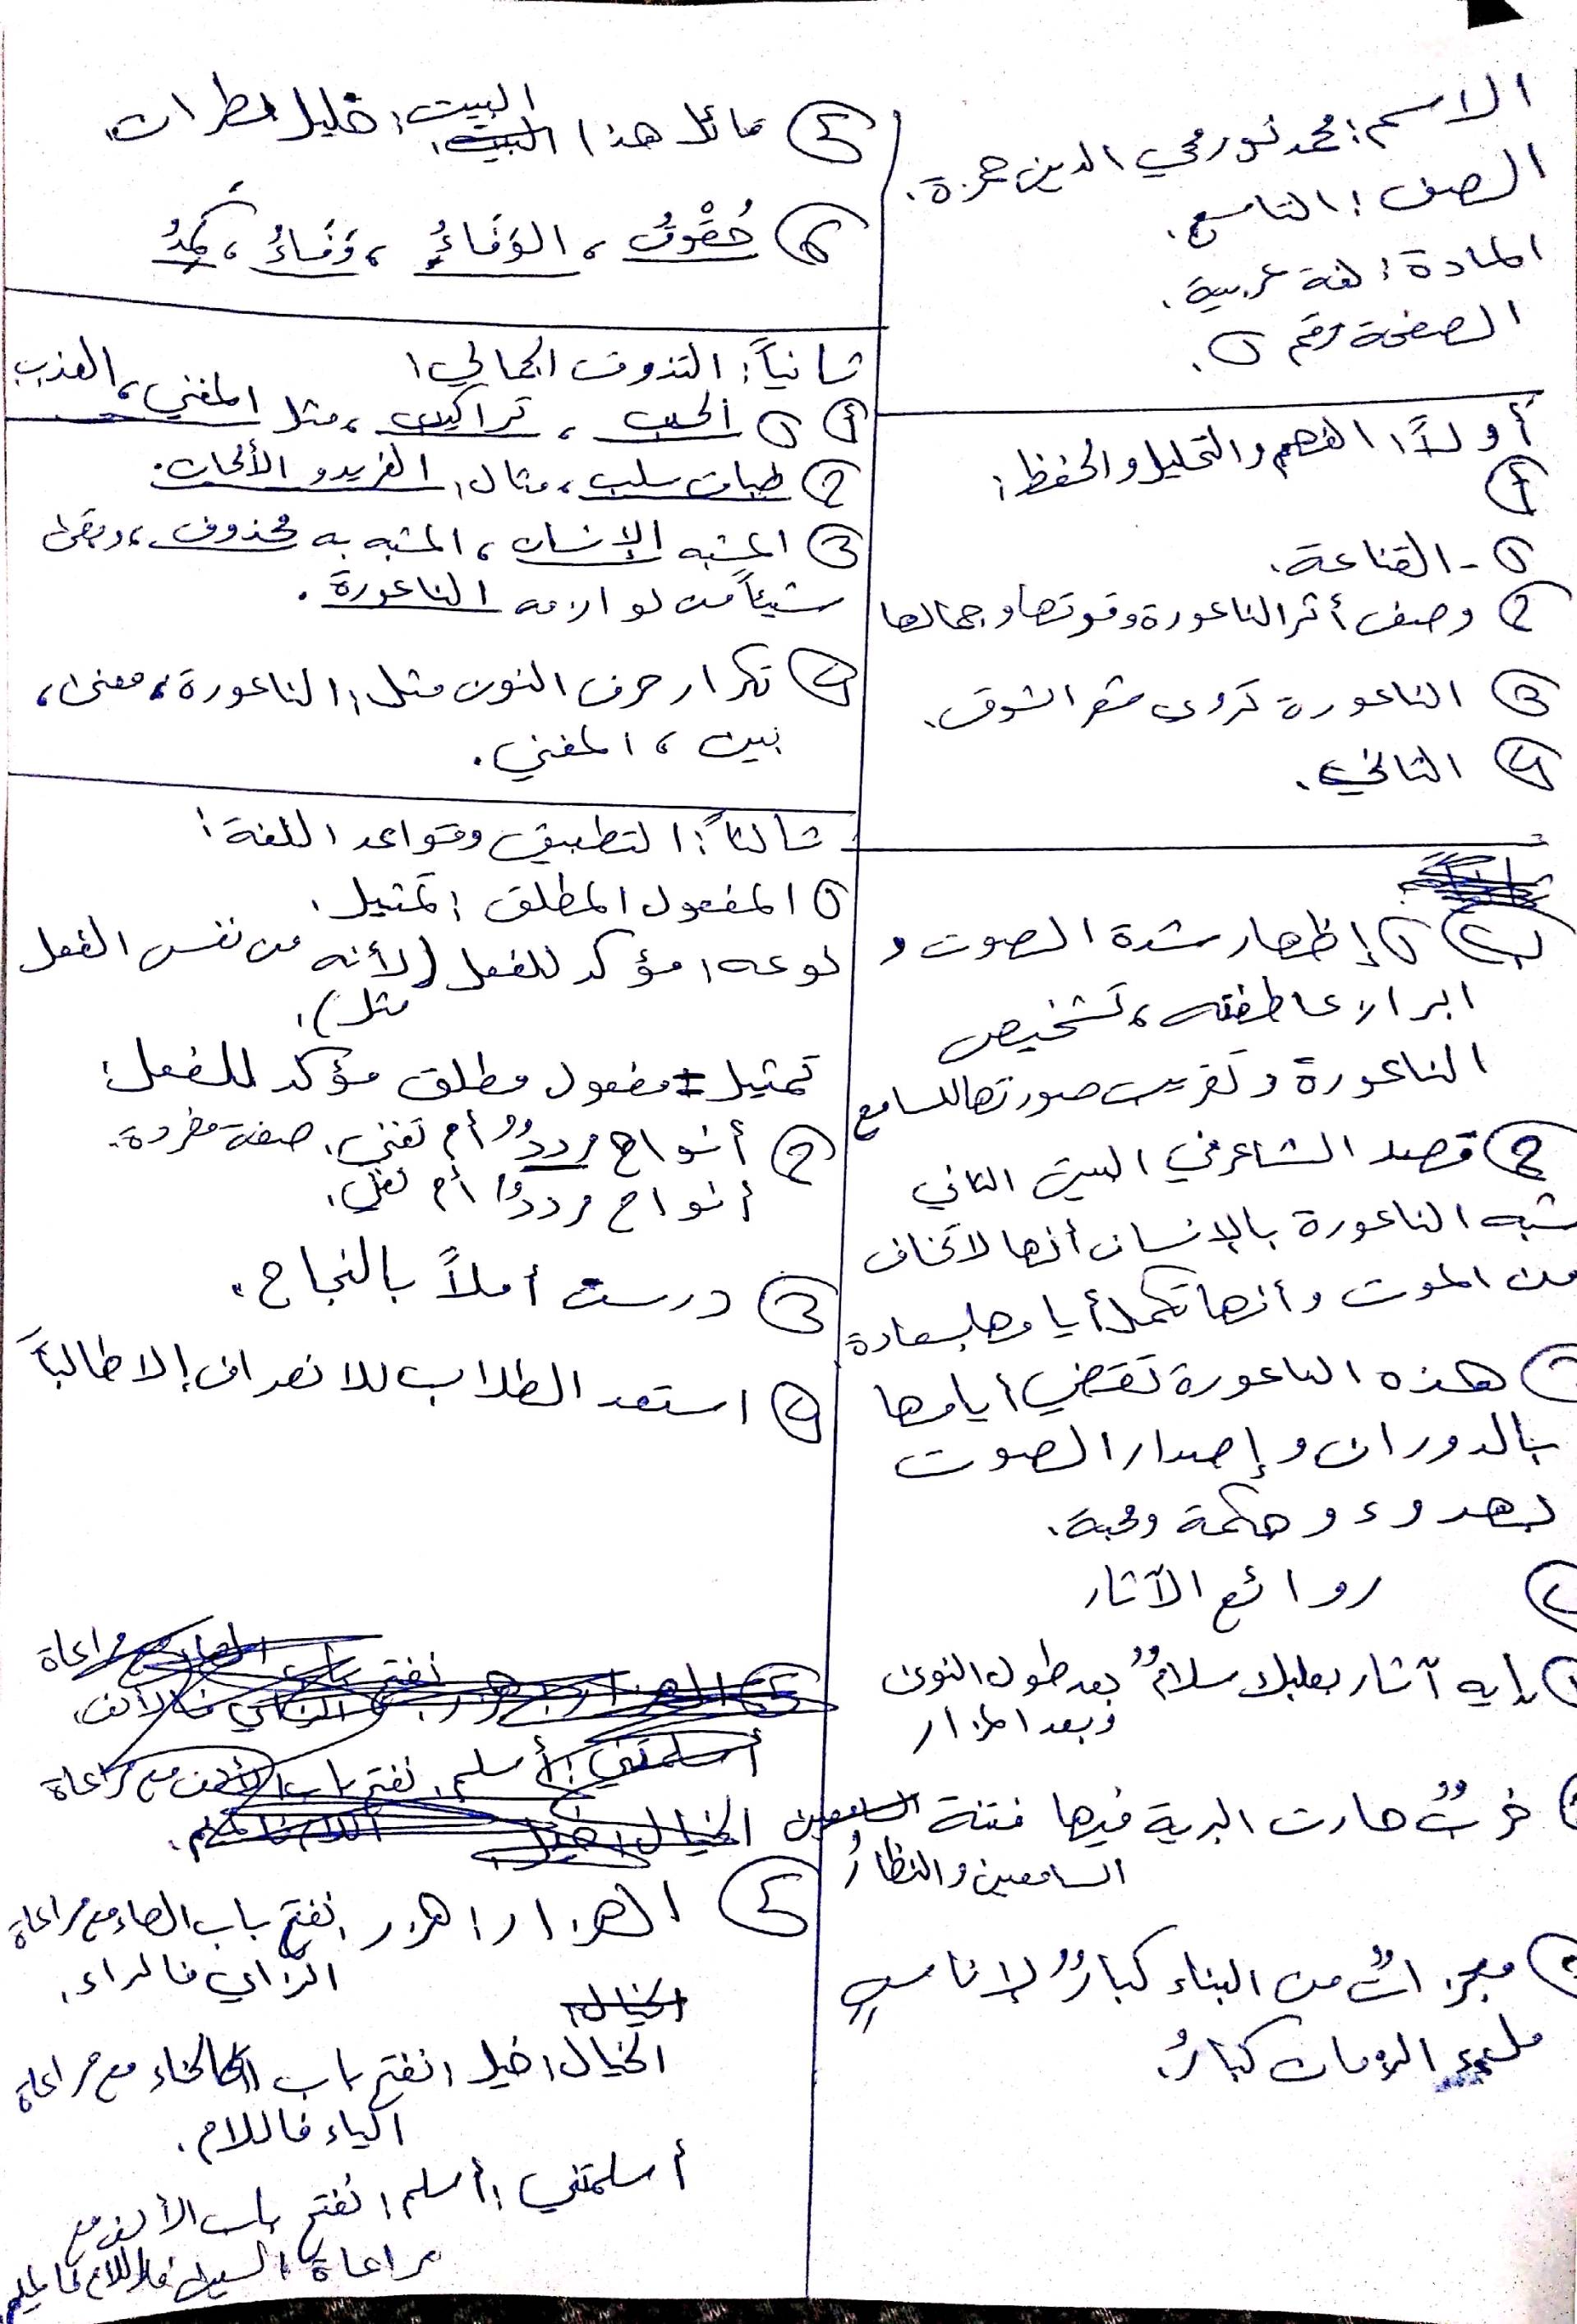 الاسم: محمد نور محي الدين حمزة.
الصف: التاسع.
المادة: لغة عربية.
الصفحة رقم ١.
أولاً: الفهم والتحليل والحفظ:
أ
١- القناعة.
٢ وصف أثر الناعورة وقوتها وجمالها
٣ الناعورة تروي شعر الشوق.
٤ الثاني.
ب ١ إظهار شدة الصوت و
ابراز عاطفته، تشخيص
الناعورة وتقريب صورتها للسامع
٢ قصد الشاعر في البيت الثاني
شبه الناعورة بالإنسان أنها لا تخاف
من الموت وأنها تكمل أيامها بسعادة
هذه الناعورة تقضي أيامها
بالدوران وإصدار الصوت
بهدوء وحكمة ومحبة.
روائع الآثار
إيه آثار بعلبك سلامٌ بعد طول النوى
وبعد المزار
خربٌ حارت البرية فيها فتنة
السامعين والنظارُ
معجزاتٌ من البناء كبارٌ لإناسٍ
ملء الزمان كبارُ.
٥ قائل هذا البيت: خليل مطران.
٦ حُقْوقُ، الوَفَاءُ، وَفَاءُ،
ثانياً: التذوق الجمالي:
أ ١ الحب، تراكيب، مثل المغني، العذب
٢ طباق سلب، مثال: الفريد و الألحان.
٣ المشبه الإنسان، المشبه به محذوف، وبقى
شيئاً من لوازمه الناعورة.
٤ تكرار حرف النون مثل: الناعورة، معنى،
بين، المغني.
ثالثاً: التطبيق وقواعد اللغة:
١ المفعول المطلق: تمثيل.
نوعه: مؤكد للفعل (لأنه من نفس الفعل
مثل).
تمثيل = مفعول مطلق مؤكد للفعل:
٢ أنواح مرددٌ أم تغني. صفة مفردة.
أنواح مرددٌ أم
٣ درست أملاً بالنجاح.
٤ استعد الطلاب للانصراف إلا طالباً
٥ الهزار: هزر: نفتح باب الهاء مع مراعاة
الزاي فالراء.
الخيال: خيل: نفتح باب الخاء مع مراعاة
الياء فاللام.
أسلمتني: أسلم: نفتح باب الألف مع
مراعاة السين فاللام فالميم